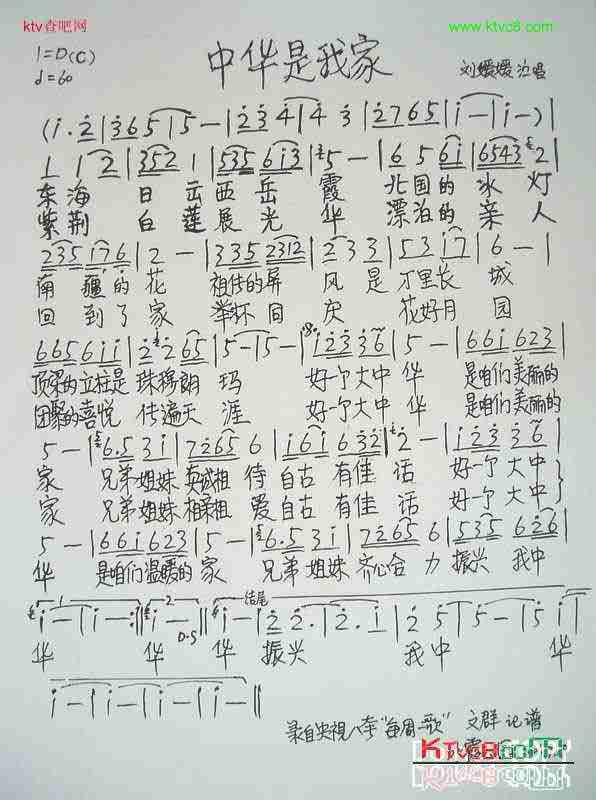 ktv查吧网
www.ktvc8.com
1=D(C)
中华是我家
♩=60
刘媛媛 演唱
(i.2|365|5-|234|4 3|2765|i-|i-)|
1 12|352 1|535 6i3|5-|6 5 6i|6543 2|
东海 日出西岳 霞 北国的 冰 灯
紫荆 白莲展光 华 漂泊的 亲 人
235 i76|2-|335 2312|2 3 3|53 i7|6-|
南疆的花 祖传的屏 风 是 万里长 城
回到了家 举杯同 庆 花好月 园
665 6ii|2 265|5-|5-|i23 36|5-|66i 623|
顶梁的立柱是 珠穆朗 玛 好一个大中 华 是咱们美丽的
团聚的喜悦 传遍天 涯 好一个大中 华 是咱们美丽的
5-|6.5 3i|7265 6|i6i 632|2-|i23 36|
家 兄弟姐妹 真诚相 待 自古 有佳 话 好一个大中
家 兄弟姐妹 相亲相 爱 自古 有佳 话 好一个大中
5-|66i 623|5-|6.5 3i|7265 6|535 626|
华 是咱们温暖的 家 兄弟姐妹 齐心合 力 振兴 我中
1 2 结尾
i-|i-:‖i-‖i-|2 2 2|2. i|2 5|5-|5 i|
D.S
华 华 华 振兴 我中 华
i-|i-|i-|i-‖
录自央视八套"每周一歌" 文群记谱
KTVC8.COM